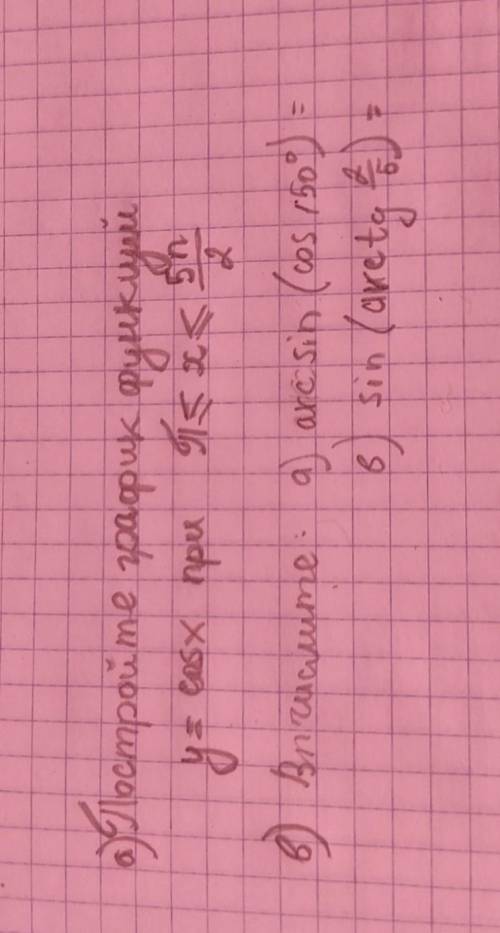 а) Постройте график функций
y = cos x при π ≤ x ≤ 5π/2
в) Вычислите: а) arcsin (cos 150°) =
в) sin (arctg
) =